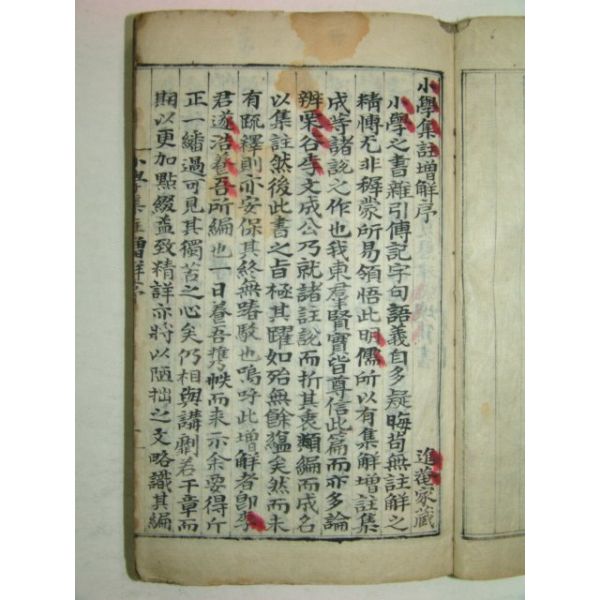 小學集註增解序 進菴家藏
小學之書雜引傳記字句語義自多疑晦苟無註解之
精愽尤非稺蒙所易領悟此明儒所以有集解增註集
成等諸說之作也我東羣賢實皆尊信此篇而亦多論
辨栗谷李文成公乃就諸註說而折其衷類編而成名
以集註然後此書之旨極其躍如殆無餘蘊矣然而未
有䟽釋則亦安保其終無踳駁也嗚呼此增解者卽李
君遂浩養吾所編也一日養吾携帙而来示余要得斤
正一繙過可見其獨苦之心矣仍相與講劘若干章而
期以更加點綴益致精詳亦將以陋拙之文略識其編
小學集註增解序